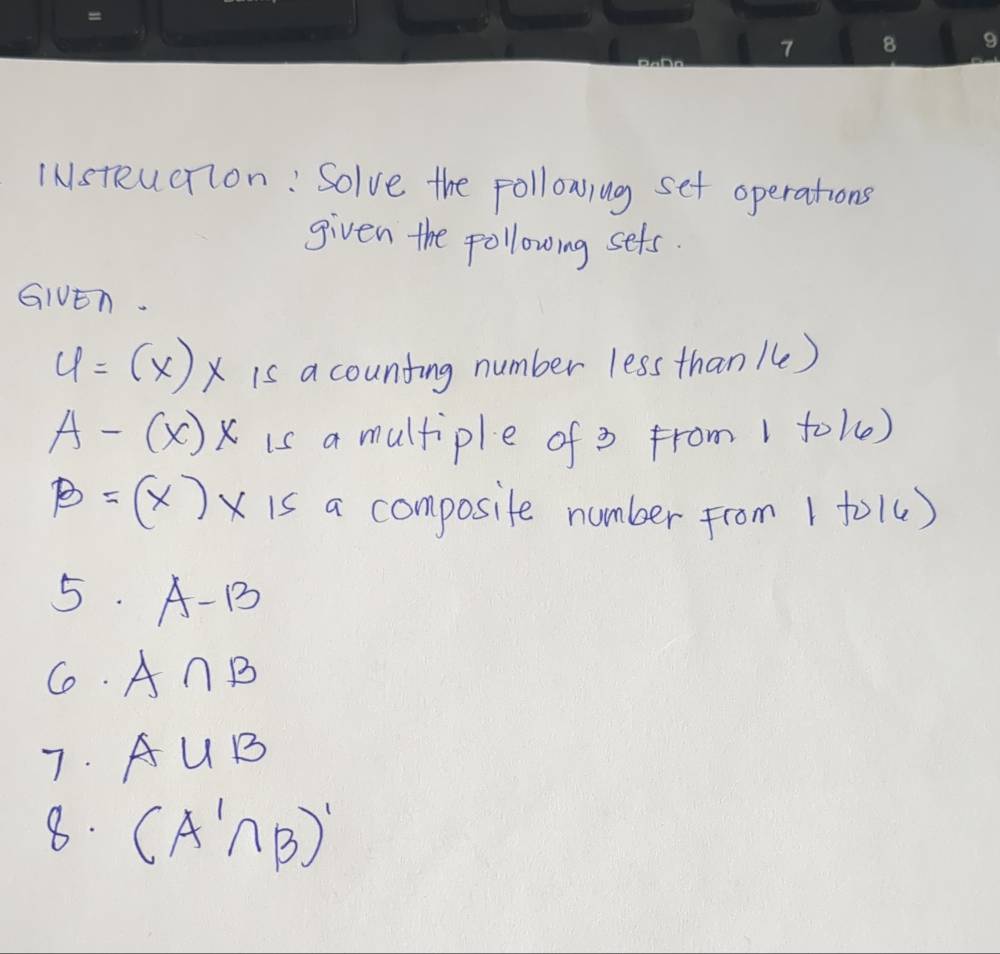 =
7
8
9
PgDn
INSTRUCTION : Solve the following set operations
given the following sets.
GIVEN .
U = (x) x is a counting number less than 16)
A - (x) x is a multiple of 3 From 1 to 16)
B = (x) x is a composite number From 1 to 16)
5 . A-B
6 . A ∩ B
7 . A U B
8 . (A' ∩ B)'